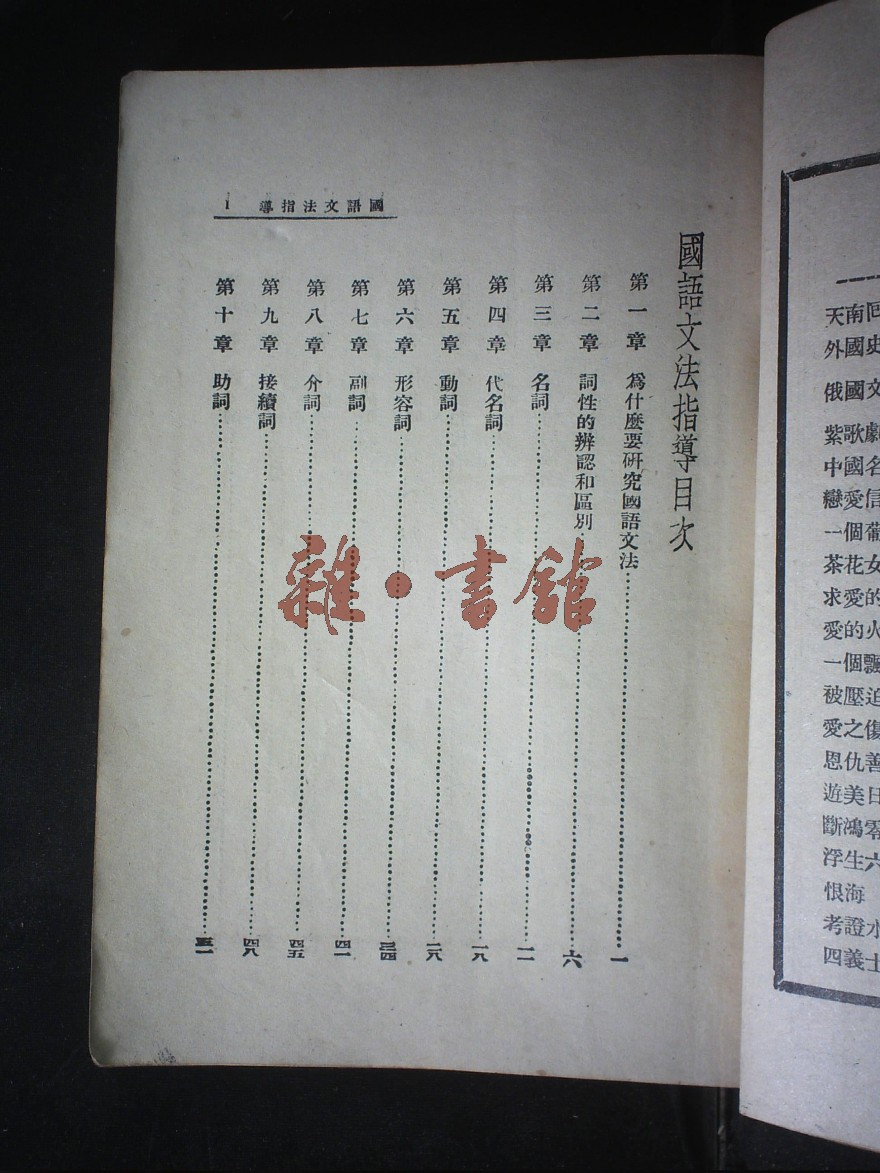 國語文法指導 1
國語文法指導目次
第一章 爲什麽要研究國語文法……一
第二章 詞性的辨認和區別……六
第三章 名詞……一一
第四章 代名詞……一八
第五章 動詞……二八
第六章 形容詞……三四
第七章 副詞……四一
第八章 介詞……四五
第九章 接續詞……四八
第十章 助詞……五一
雜·書館
天南回
外國史
俄國文
紫歌劇
中國名
戀愛信
一個葡
茶花女
求愛的
愛的火
一個飄
被壓迫
愛之傷
恩仇善
遊美日
斷鴻零
浮生六
恨海
考證水
四義士